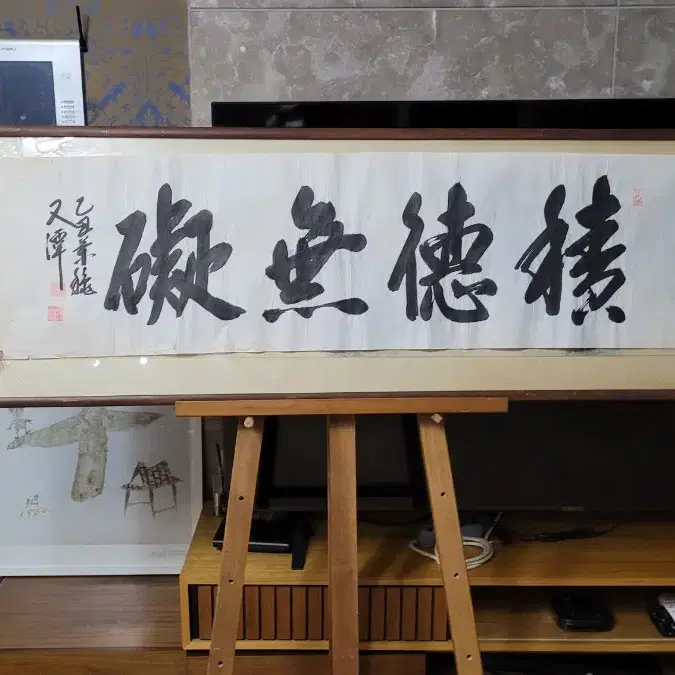 積德無礙
乙丑菊秋
又潭